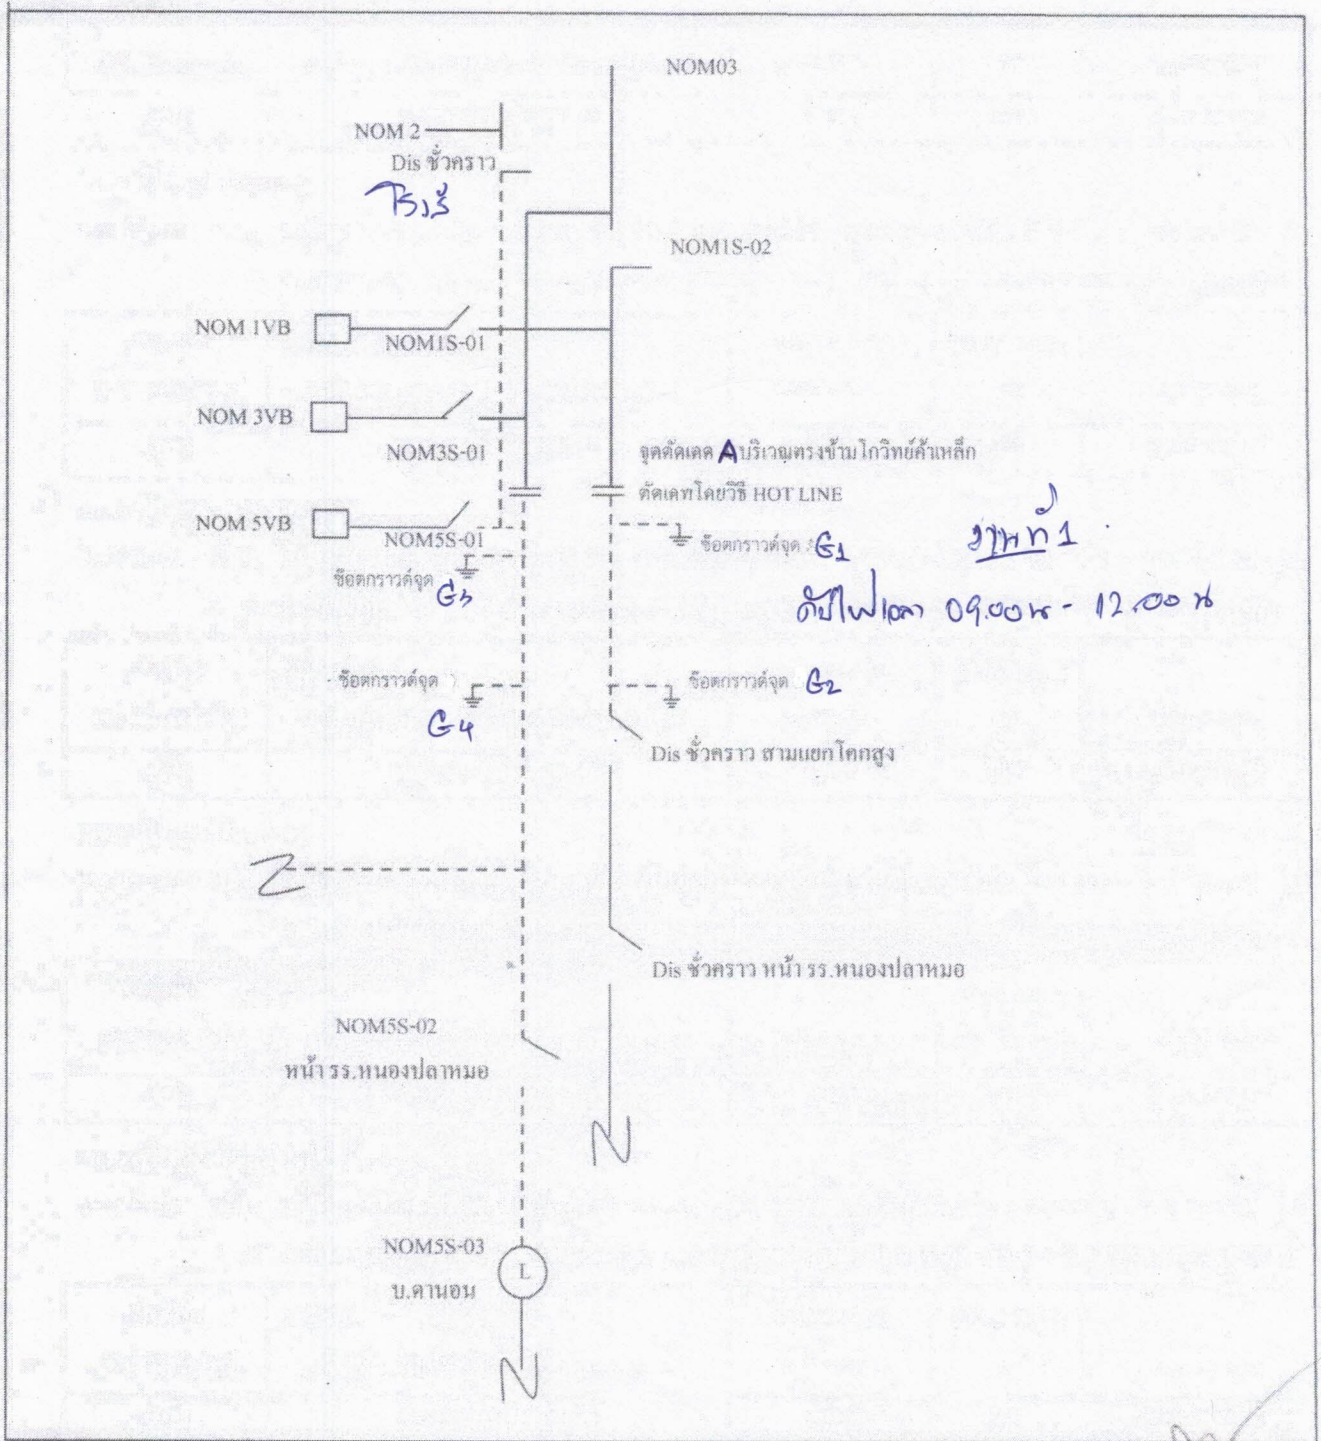 NOM03
NOM 2
Dis ชั่วคราว
NOM1S-02
NOM 1VB
NOM1S-01
NOM 3VB
NOM3S-01
จุดตัดเดด A บริเวณตรงข้ามโกวิทย์ค้าเหล็ก
ตัดเดทโดยวิธี HOT LINE
NOM 5VB
NOM5S-01
ช๊อตกราวด์จุด G1
งานที่ 1
ช๊อตกราวด์จุด G3
ดับไฟเวลา 09.00 น - 12.00 น
ช๊อตกราวด์จุด G4
ช๊อตกราวด์จุด G2
Dis ชั่วคราว สามแยกโคกสูง
Dis ชั่วคราว หน้า รร.หนองปลาหมอ
NOM5S-02
หน้า รร.หนองปลาหมอ
NOM5S-03
L
บ.ดานอน